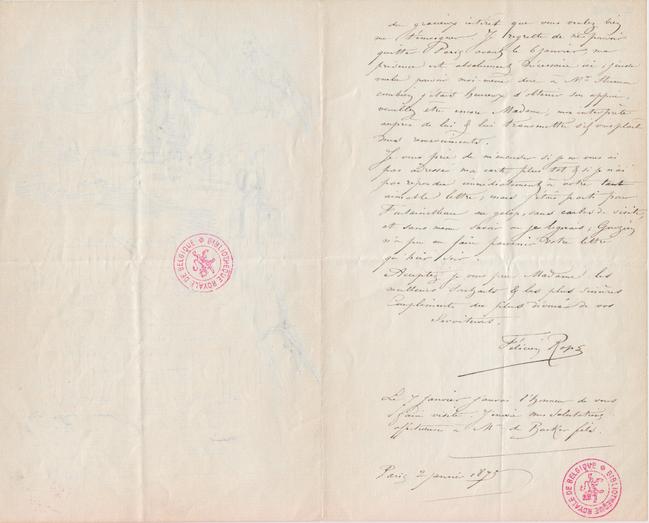 du gracieux intérêt que vous voulez bien
me témoigner. Je regrette de ne pouvoir
quitter Paris avant le 6 janvier, ma
présence est absolument nécessaire ici, j'eusse
voulu pouvoir moi même dire à Mr
combien j'étais heureux d'obtenir son appui,
veuillez être encore Madame, mon interprète
auprès de lui & lui transmettre s'il vous plaît
mes remerciements.
Je vous prie de m'excuser si je ne vous ai
pas adressé ma carte plus tôt & si je n'ai
pas répondu immédiatement à votre tant
aimable lettre, mais j'étais parti pour
Fontainebleau au galop, sans cartes de visite,
et sans même savoir où je logerais,
n'a pu me faire parvenir votre lettre
qu'hier soir.
Acceptez je vous prie Madame les
meilleurs souhaits & les plus sincères
compliments du plus dévoué de vos
serviteurs.
Félicien Rops
Le 7 janvier j'aurai l'honneur de vous
faire visite. J'envoie mes salutations
affectueuses à Mr de Backer fils.
Paris 2 janvier 1875
BIBLIOTHÈQUE ROYALE DE BELGIQUE
BIBLIOTHÈQUE ROYALE DE BELGIQUE